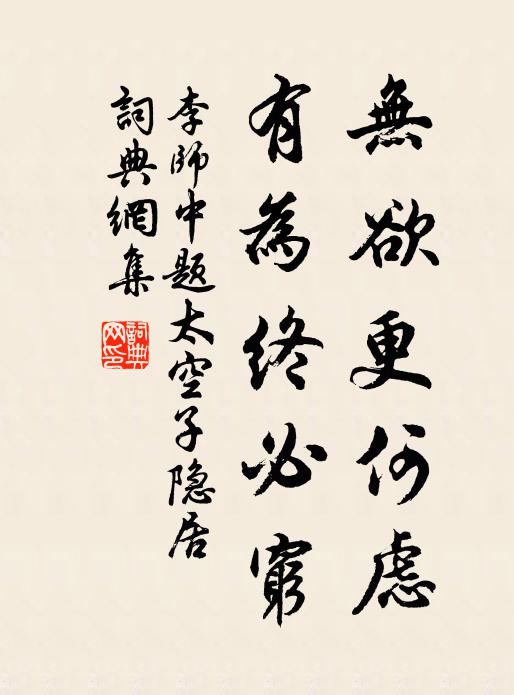 無欲更何慮
有為終必窮
李師中題太空子隐居
詞典網集
詞典網印